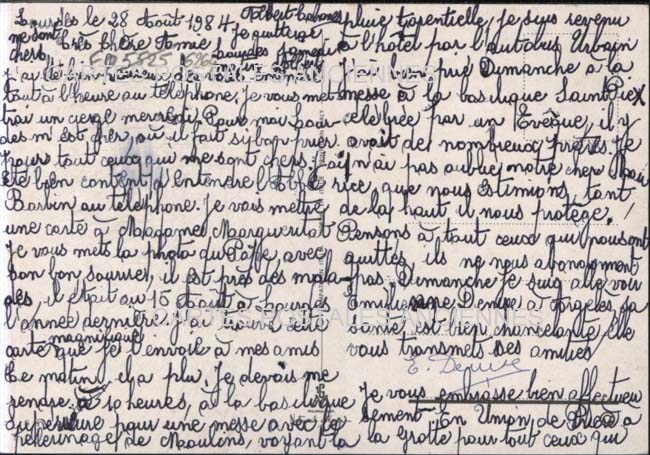 Lourdes le 28 Août 1984, Albert Cabanes
Je quitterai
Lourdes samedi
matin Albert
Très Chère Amie
me sont
chers
J'ai été bien heureux de vous entendre
tout à l'heure au téléphone. Je vous met
trai un cierge mercredi. Pour moi Lour
des m'est cher, où il fait si bon prier
pour tout ceux qui me sont chers. J'ai
été bien content d'entendre l'Abbé
au téléphone. Je vous mettré
une carte à Madame
Je vous mets la photo du Pape, avec
son bon sourire, il est près des mala-
des, il était au 15 Août à Lourdes
l'année dernière. J'ai trouvé cette
magnifique
carte que je l'envoie à mes amis
Ce matin, il a plu. Je devais me
rendre à 10 heures, à la basilique
supérieure pour une messe avec le
pèlerinage de Moulins, voyant la
pluie torentielle, je suis revenu
à l'hôtel par l'autobus Urbain
J'ai bien prié Dimanche à la
messe à la basilique Saint Pie X
célébrée par un Evêque, il y
avait de nombreux prêtres. Je
n'ai pas oublié notre cher Mau
rice, que nous estimions, tant
de là haut il nous protège.
Pensons à tout ceux qui nous ont
quittés, ils ne nous abandonnent
pas. Dimanche je suis allé voir
Emilienne Denise à Argelès, sa
santé est bien chancelante, elle
vous transmets ses amitiés
E. Denise
Je vous embrasse bien affectueu
sement. En Union de Prière à
la Grotte pour tout ceux qui
CARTES POSTALES ANCIENNES